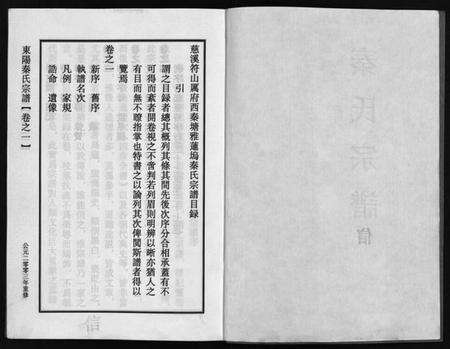 慈溪符山厲府西秦塘雅蓮塢秦氏宗譜目録
引
謂之目録者總其概列其條其間先後次序分合相承蓋有不
可得而紊者開卷視之不啻判若列眉則明辨以晰亦猶人之
有目而無不瞭指掌也特書之以論列其次俾閱斯譜者得以
覽焉
卷之一
新序 舊序
執譜名次
凡例 家規
誥命 遺像
東陽秦氏宗譜【卷之一】
公元二零零三年重修
秦氏宗譜
信